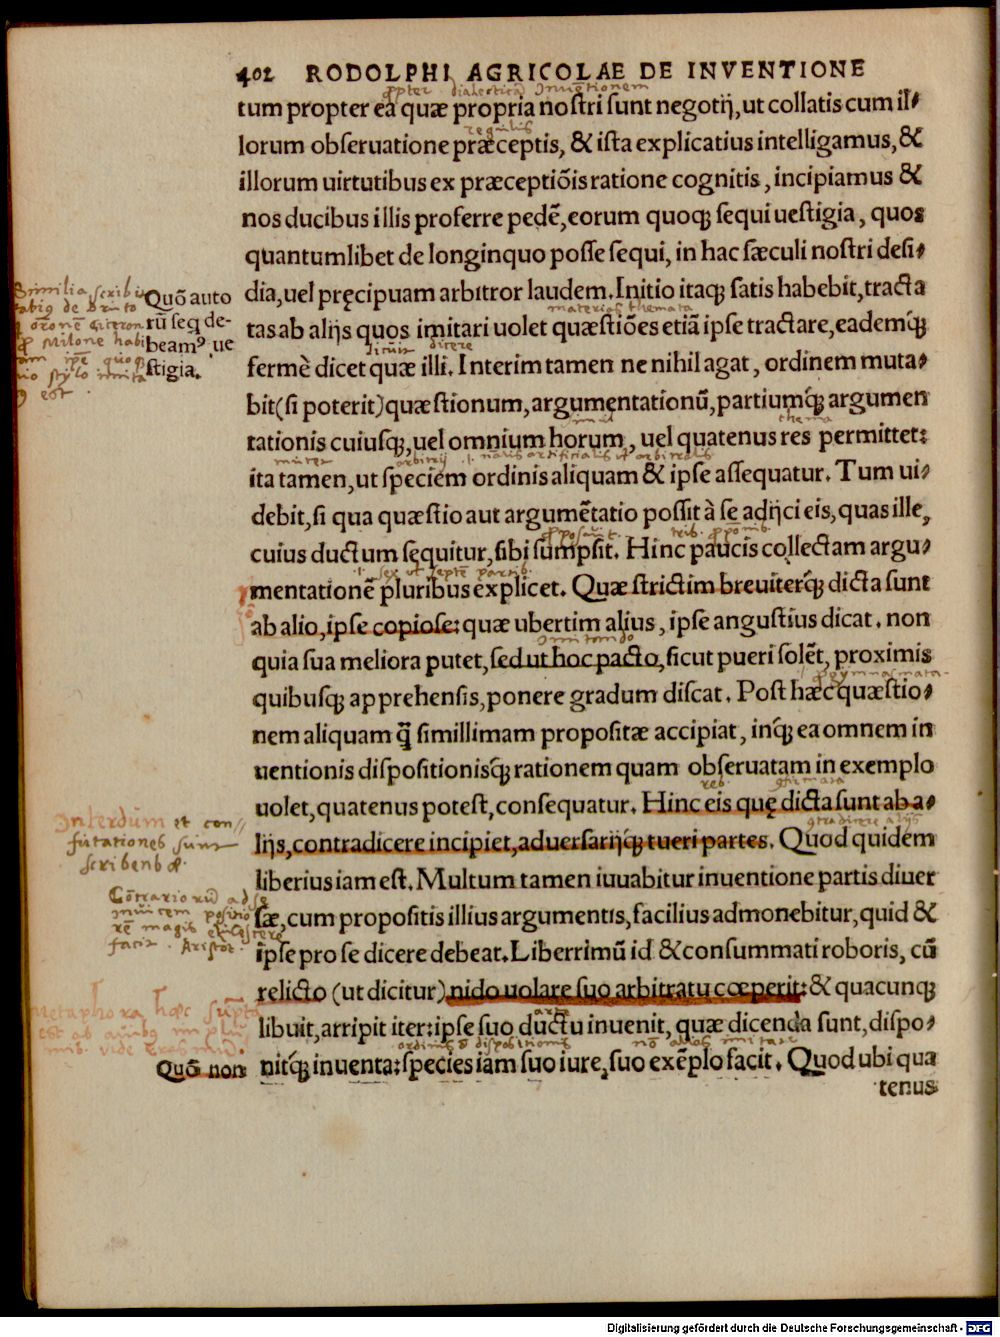 402 RODOLPHI AGRICOLAE DE INVENTIONE
tum propter ea quæ propria nostri sunt negotij, ut collatis cum il-
lorum obseruatione præceptis, & ista explicatius intelligamus, &
illorum uirtutibus ex præceptiõis ratione cognitis, incipiamus &
nos ducibus illis proferre pedẽ, eorum quoq; sequi uestigia, quos
quantumlibet de longinquo posse sequi, in hac sæculi nostri desi-
dia, uel pręcipuam arbitror laudem. Initio itaq; satis habebit, tracta
Quõ auto
rũ seq̃ de-
beamꝰ ue
stigia.
tas ab alijs quos imitari uolet quæstiões etiã ipse tractare, eademq́;
fermè dicet quæ illi. Interim tamen ne nihil agat, ordinem muta-
bit (si poterit) quæstionum, argumentationũ, partiumq́; argumen
tationis cuiusq;, uel omnium horum, uel quatenus res permittet:
ita tamen, ut speciem ordinis aliquam & ipse assequatur. Tum ui-
debit, si qua quæstio aut argumẽtatio possit à se adijci eis, quas ille,
cuius ductum sequitur, sibi sumpsit. Hinc paucis collectam argu-
mentationẽ pluribus explicet. Quæ strictim breuiterq́; dicta sunt
ab alio, ipse copiose: quæ ubertim alius, ipse angustius dicat. non
quia sua meliora putet, sed ut hoc pacto, sicut pueri solẽt, proximis
quibusq; apprehensis, ponere gradum discat. Post hæc quæstio-
nem aliquam q̃ simillimam propositæ accipiat, inq́; ea omnem in
uentionis dispositionisq́; rationem quam obseruatam in exemplo
uolet, quatenus potest, consequatur. Hinc eis quę dicta sunt ab a-
Interdum et con-
futationes sunt
scribendæ
lijs, contradicere incipiet, aduersarijq́; tueri partes. Quod quidem
liberius iam est. Multum tamen iuuabitur inuentione partis diuer
sæ, cum propositis illius argumentis, facilius admonebitur, quid &
ipse pro se dicere debeat. Liberrimũ id & consummati roboris, cũ
relicto (ut dicitur) nido uolare suo arbitratu cœperit: & quacunq;
libuit, arripit iter: ipse suo ductu inuenit, quæ dicenda sunt, dispo-
Quõ non
nitq́; inuenta: species iam suo iure, suo exẽplo facit. Quod ubi qua
tenus
Digitalisierung gefördert durch die Deutsche Forschungsgemeinschaft - DFG